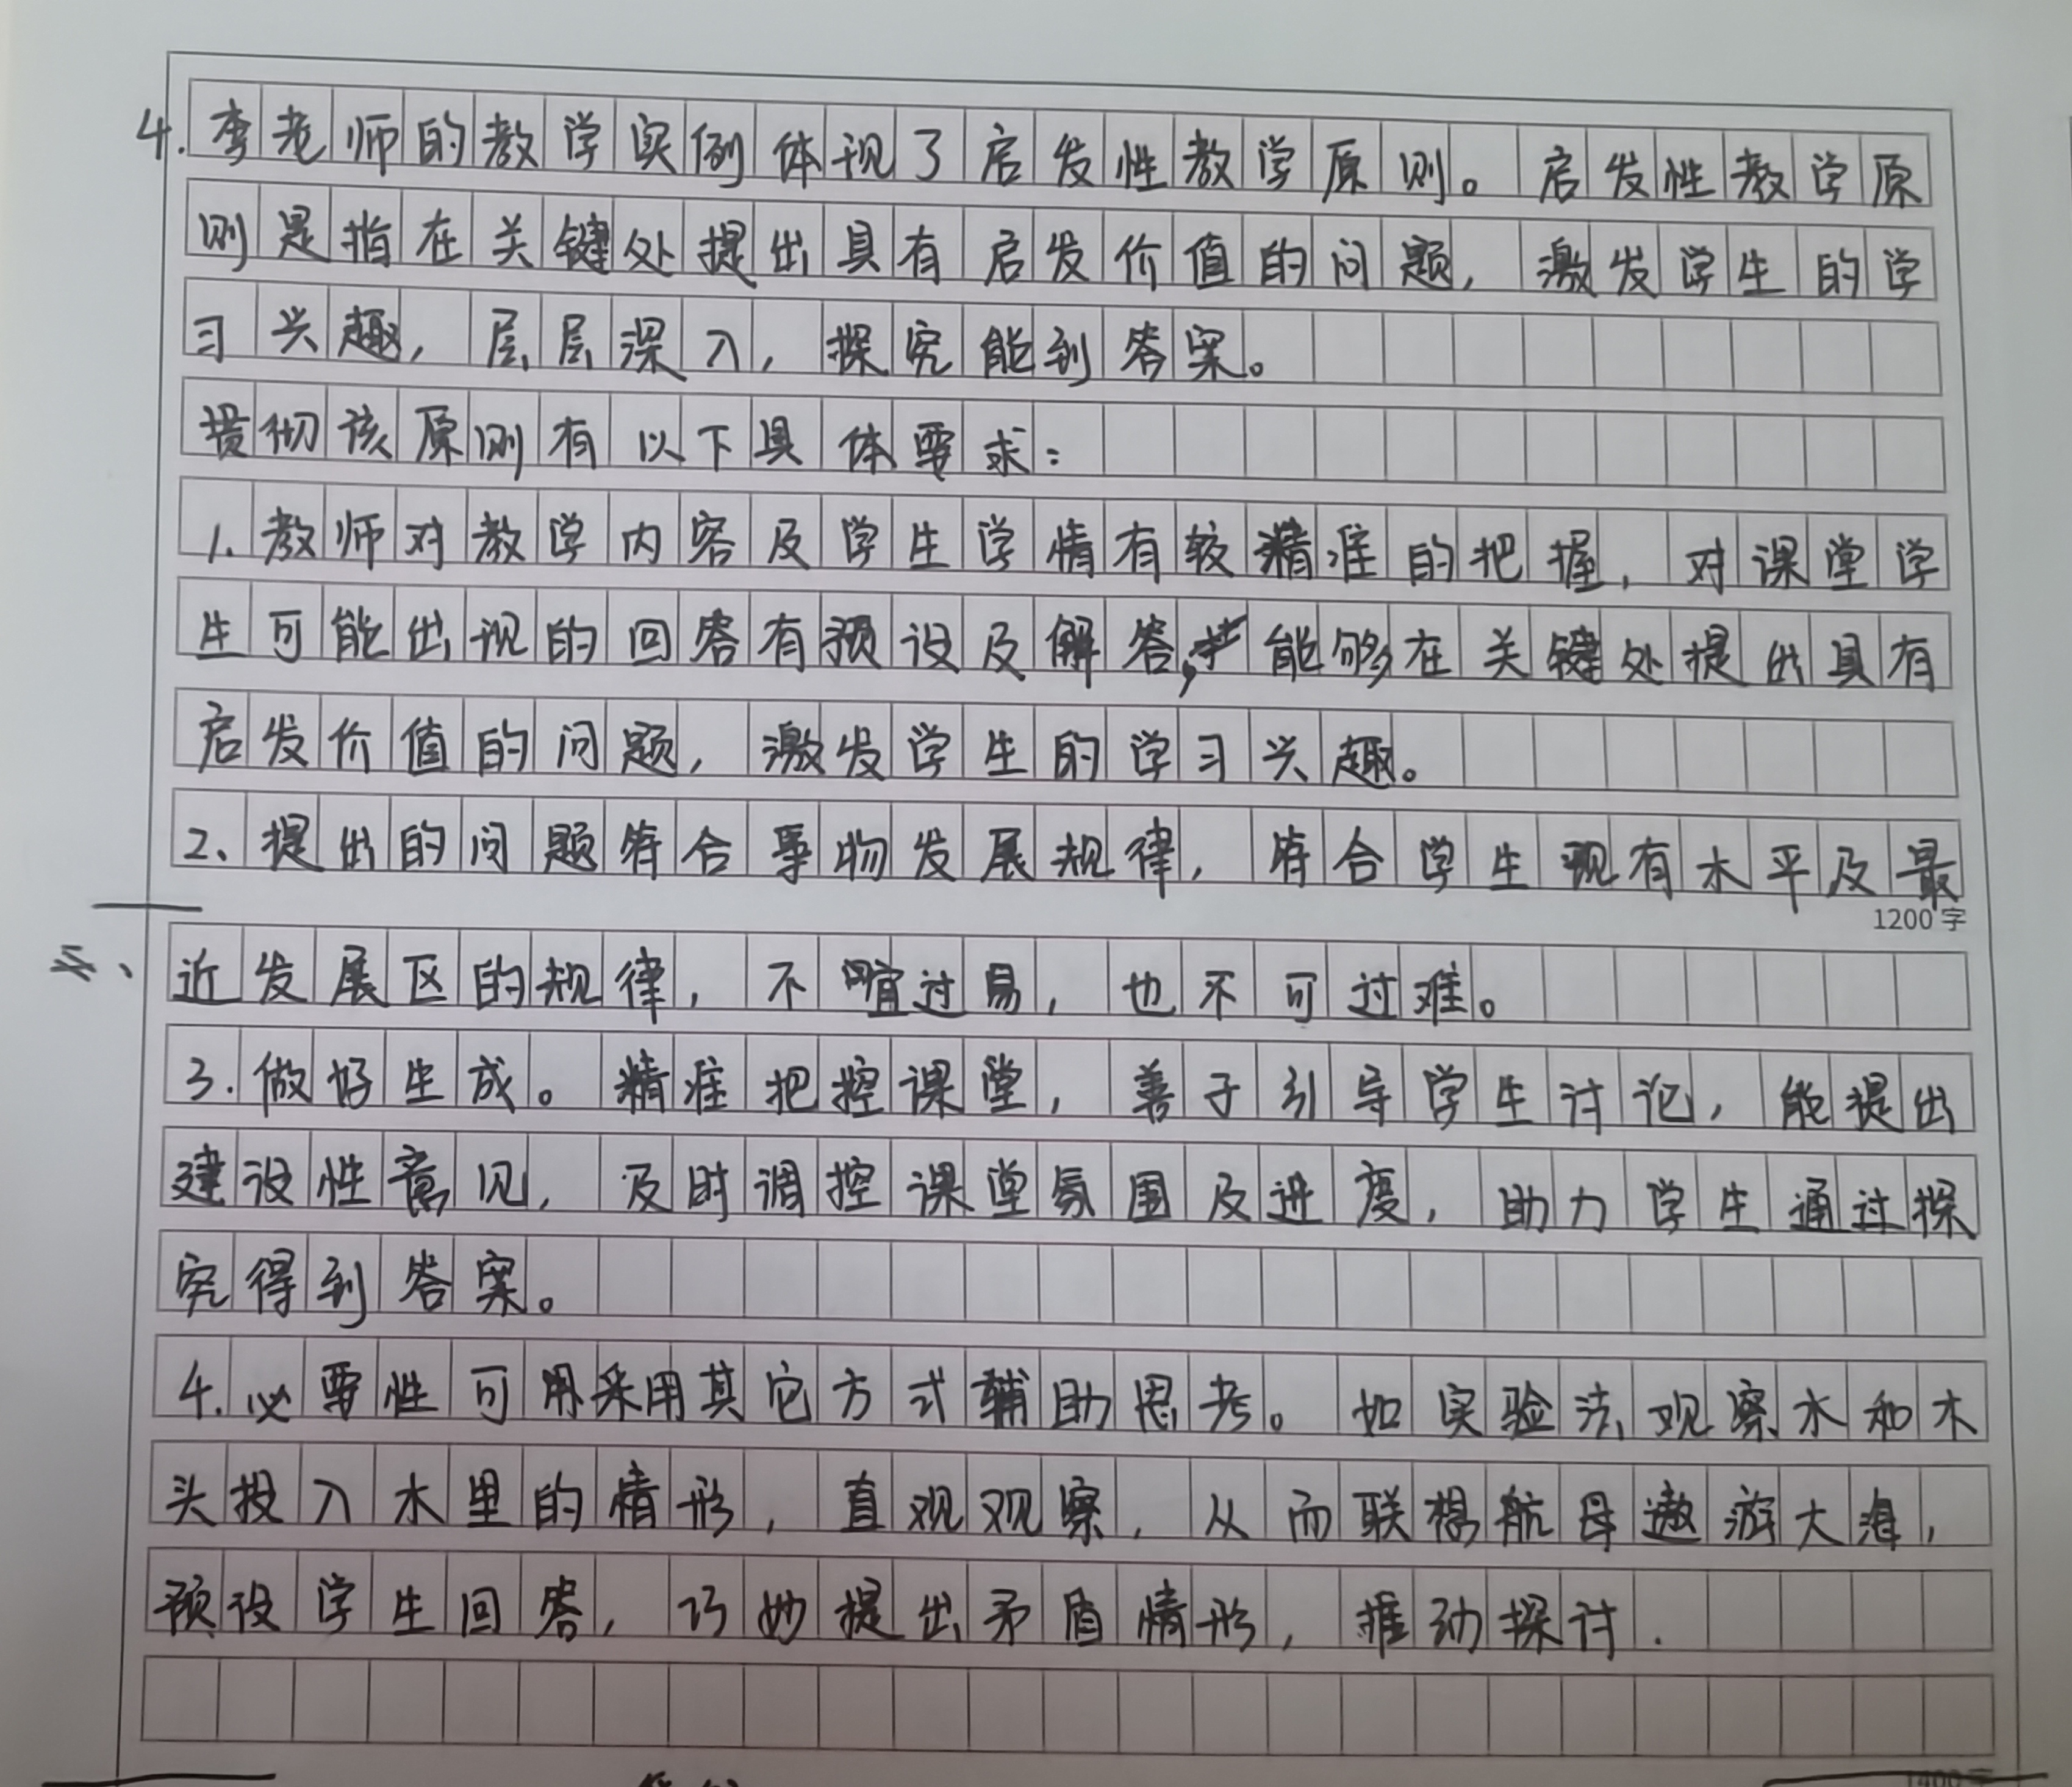 4.李老师的教学实例体现了启发性教学原则。启发性教学原
则是指在关键处提出具有启发价值的问题,激发学生的学
习兴趣,层层深入,探究能到答案。
贯彻该原则有以下具体要求:
1.教师对教学内容及学生学情有较精准的把握,对课堂学
生可能出现的回答有预设及解答,能够在关键处提出具有
启发价值的问题,激发学生的学习兴趣。
2、提出的问题符合事物发展规律,符合学生现有水平及最
1200字
近发展区的规律,不宜过易,也不可过难。
3.做好生成。精准把控课堂,善于引导学生讨论,能提出
建设性意见,及时调控课堂氛围及进度,助力学生通过探
究得到答案。
4.必要性可采用其它方式辅助思考。如实验法观察水和木
头投入水里的情形,直观观察,从而联想航母遨游大海,
预设学生回答,巧妙提出矛盾情形,推动探讨.